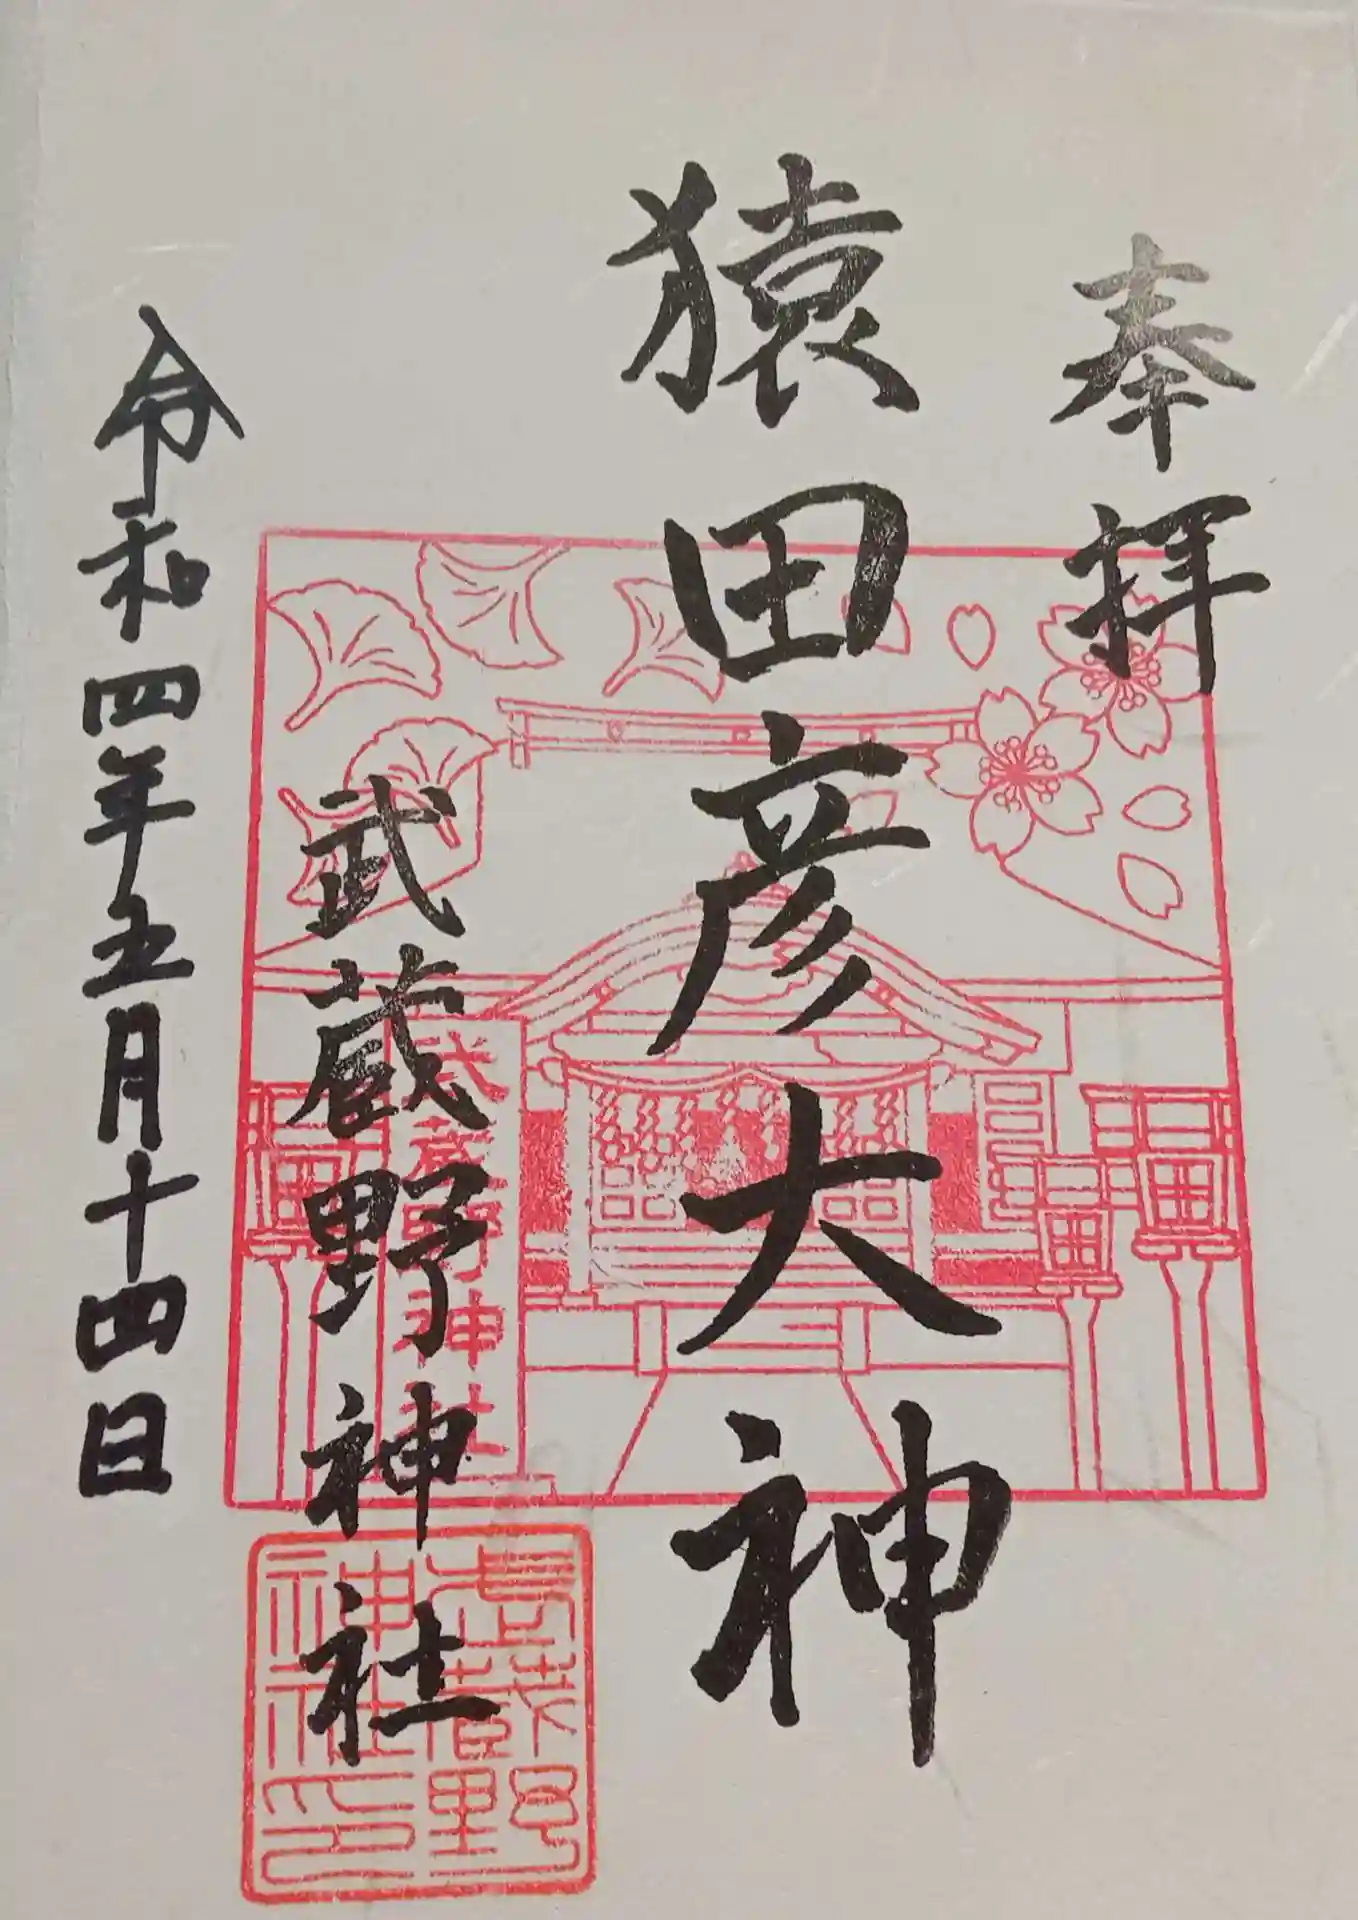 奉拝
猿田彦大神
武蔵野神社
武蔵野神社
武蔵野神社印
令和四年五月十四日